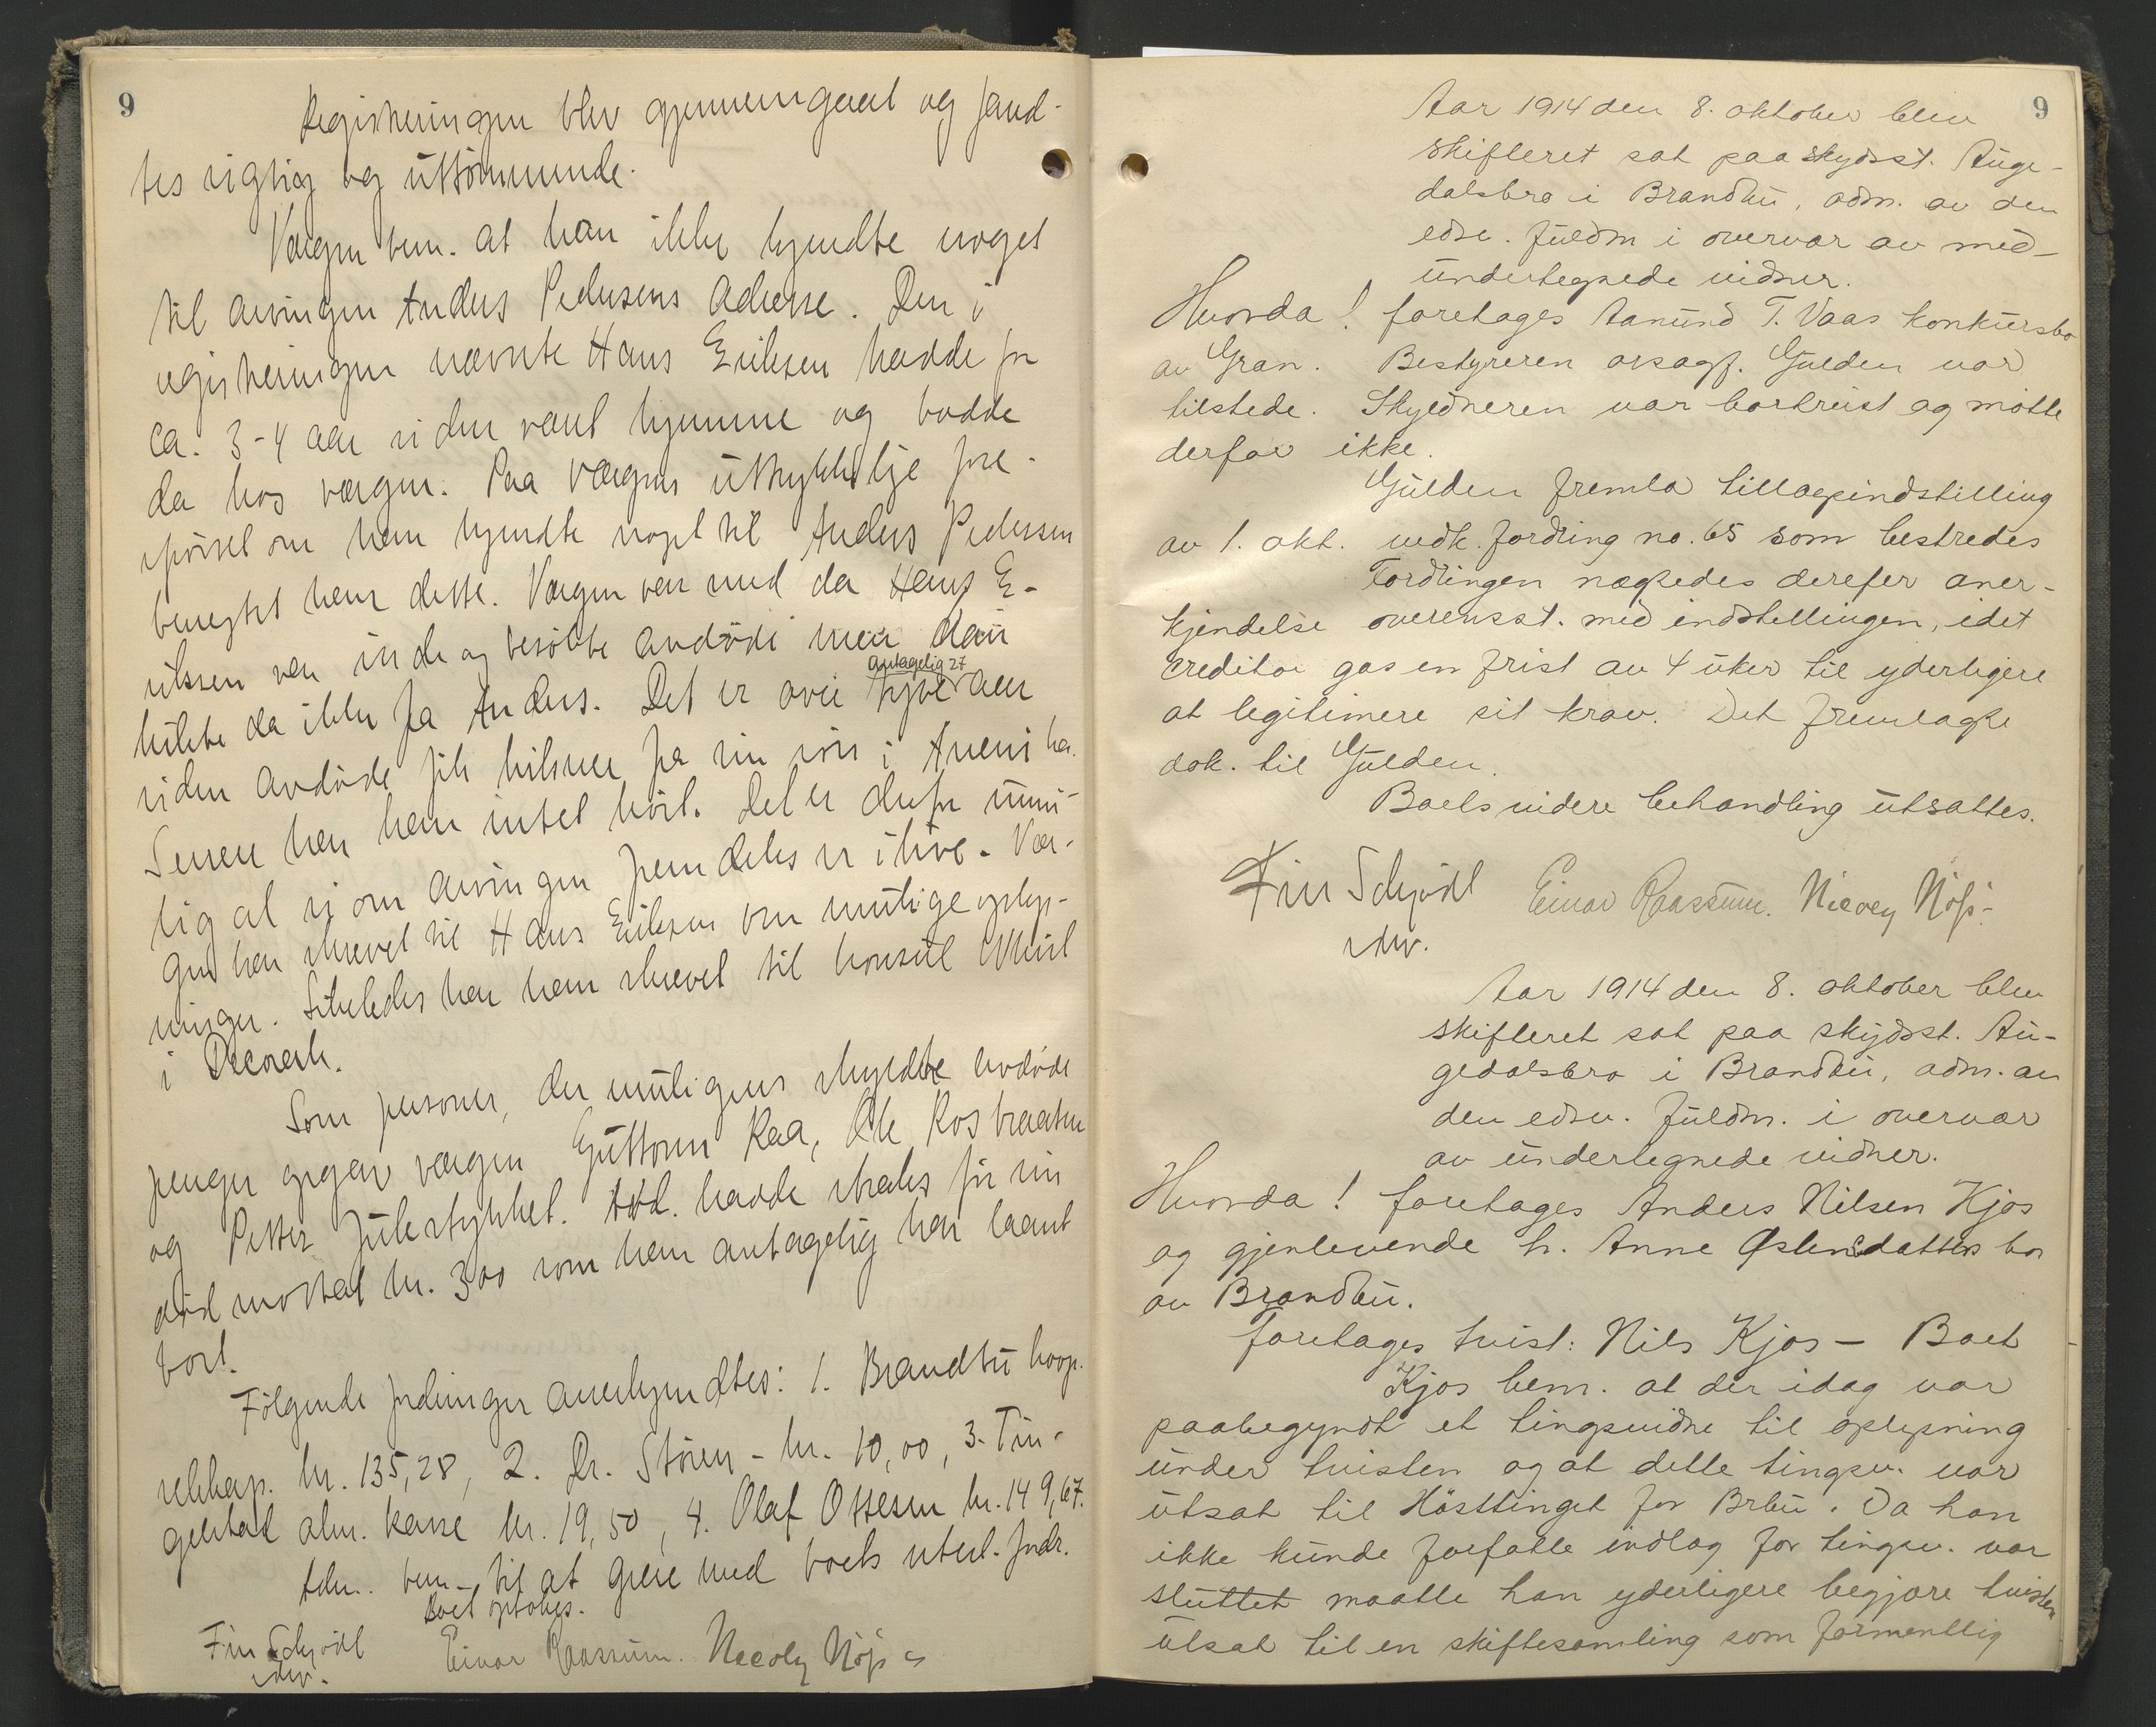 9
Registreringen blev gjennemgaaet og fand-
tes rigtig og uttömmende.
Værgen bem. at han ikke kjendte noget
til arvingen Anders Pedersens adresse. Den i
registreringen nævnte Hans Eriksen hadde for
ca. 3-4 aar siden været hjemme og bodde
da hos værgen. Paa værgens uttrykkelige fore-
spörsel om han kjendte noget til Anders Pedersen
benegtet han dette. Værgen var med da Hans E-
riksen var inde og besökte avdöde men han
hilste da ikke fra Anders. Det er over
antagelig 27
aar
siden avdöde fik hilsner fra sin sön i Amerika.
Senere har han intet hört. Det er derfor umu-
lig at si om arvingen fremdeles er ilive. Vær-
gen har skrevet til Hans Eriksen om mulige oplys-
ninger. Likeledes har han skrevet til konsul
i Decorah.
Som personer, der muligens skyldte avdöde
penger opgav værgen Guttorm Raa, Ole Rosbraaten
og Petter Julestykket. Avd. hadde straks för sin
död mottat kr. 300 som han antagelig har laant
bort.
Fölgende fordringer anerkjendtes: 1. Brandbu koop.
selskap. kr. 135,28, 2. Dr. Stören - kr. 10,00, 3. Tin-
gelstad alm. kasse kr. 19,50, 4. Olaf Ottesen kr. 149,67.
bem. til at greie med boets utest. fordr.
Boet optokes.
Fin Schjödt
sdv.
Einar Raassum. Nicolay Nøss
9
Aar 1914 den 8. oktober blev
skifteret sat paa skydsst. Auge-
dalsbro i Brandbu, adm. av den
edsv. fuldm i overvær av med-
undertegnede vidner.
Hvorda! foretages Aanund T. Vaas konkursbo
av Gran. Bestyreren orsagf. Gulden var
tilstede. Skyldneren var bortreist og mötte
derfor ikke.
Gulden fremla tillægsindstilling
av 1. okt. vedk. fordring no. 65 som bestredes
Fordringen nægtedes derefter aner-
kjendelse overensst. med indstillingen, idet
creditor gaves en frist av 4 uker til yderligere
at legitimere sit krav. Det fremlagte
dok. til Gulden.
Boets videre behandling utsattes.
Fin Schjödt
sdv.
Einar Raassum. Nicolay Nøss
Aar 1914 den 8. oktober blev
skifteret sat paa skydsst. Au-
gedalsbro i Brandbu, adm. av
den edsv. fuldm. i overvær
av undertegnede vidner.
Hvorda! foretages Anders Nilsen Kjos
og gjenlevende h. Anne Østensdatters bo
av Brandbu.
foretages tvist: Nils Kjos - Boet
Kjos bem. at der idag var
paabegyndt et tingsvidne til oplysning
under tvisten og at dette tingsv. var
utsat til Hösttinget for Brbu. Da han
ikke kunde forfatte indlæg för tingsv. var
sluttet maatte han yderligere begjære tvisten
utsat til en skiftesamling som formentlig